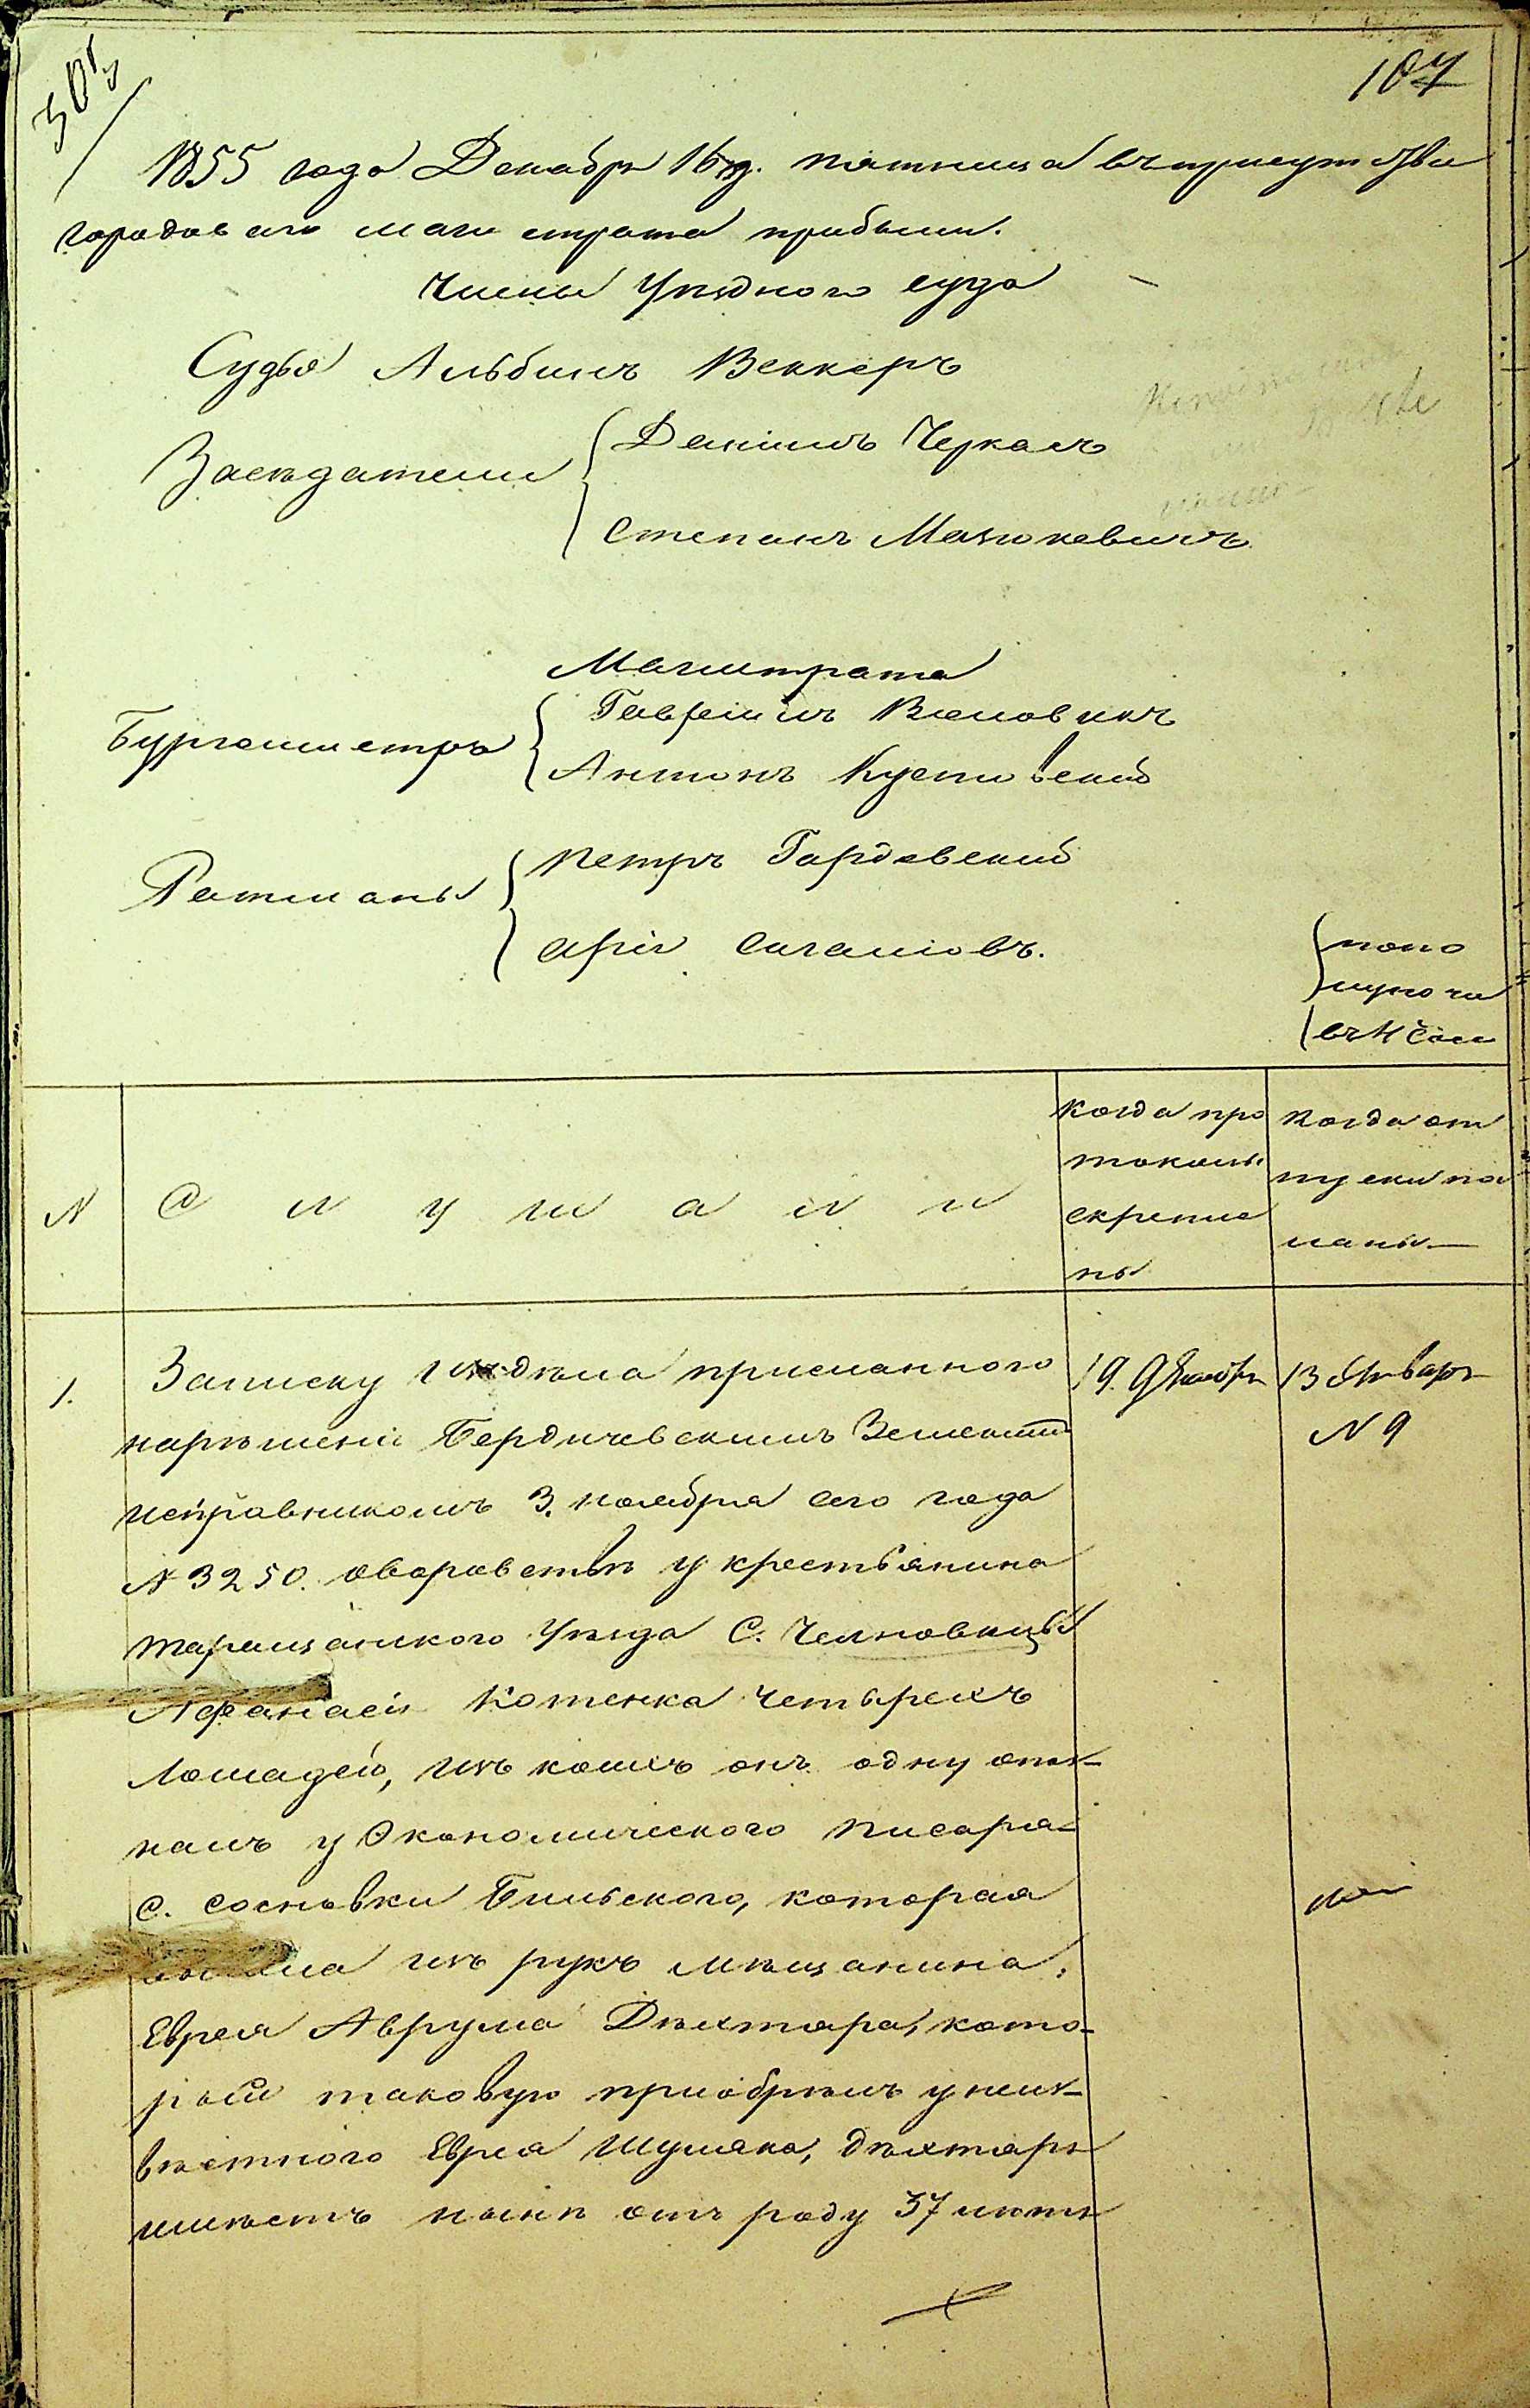 107
1855 года Декабря 16 д. пятница въ присутствіи
городоваго магистрата прибыли.
Члены Уѣзднаго суда
Судья Альбинъ Веккеръ
Засѣдатели
Даніилъ Черкасъ
Степанъ Мацюкевичъ
Магистрата
Бургомистръ
Гавріилъ
Антонъ
Ратманы
Петръ Гардовскій
пополуночи
въ 11 часов
N
Слушали
Когда про
токолы
скрепле
ны
Когда от
пуски по
сланы
1.
Записку изъ дѣла присланного
на рѣшеніе Бердичевскимъ Земскимъ
исправникомъ 3 ноября сего года
N 3250. о воровствѣ у крестьянина
таращанского Уѣзда С. Челновицы
Афанасія Котенка четырехъ
лошадей, изъ коихъ онъ одну опоз-
налъ у Экономического писаря
С. Сосновки Бильского, которая
изъ рукъ мѣщанина,
Еврея Аврума Дѣхтяра, кото-
рый таковую пріобрѣлъ у неиз-
вѣстного Еврея Шулика, дѣхтяръ
имѣетъ нынѣ отъ роду 37 лѣтъ
19 Декабря
13 Января
N 9